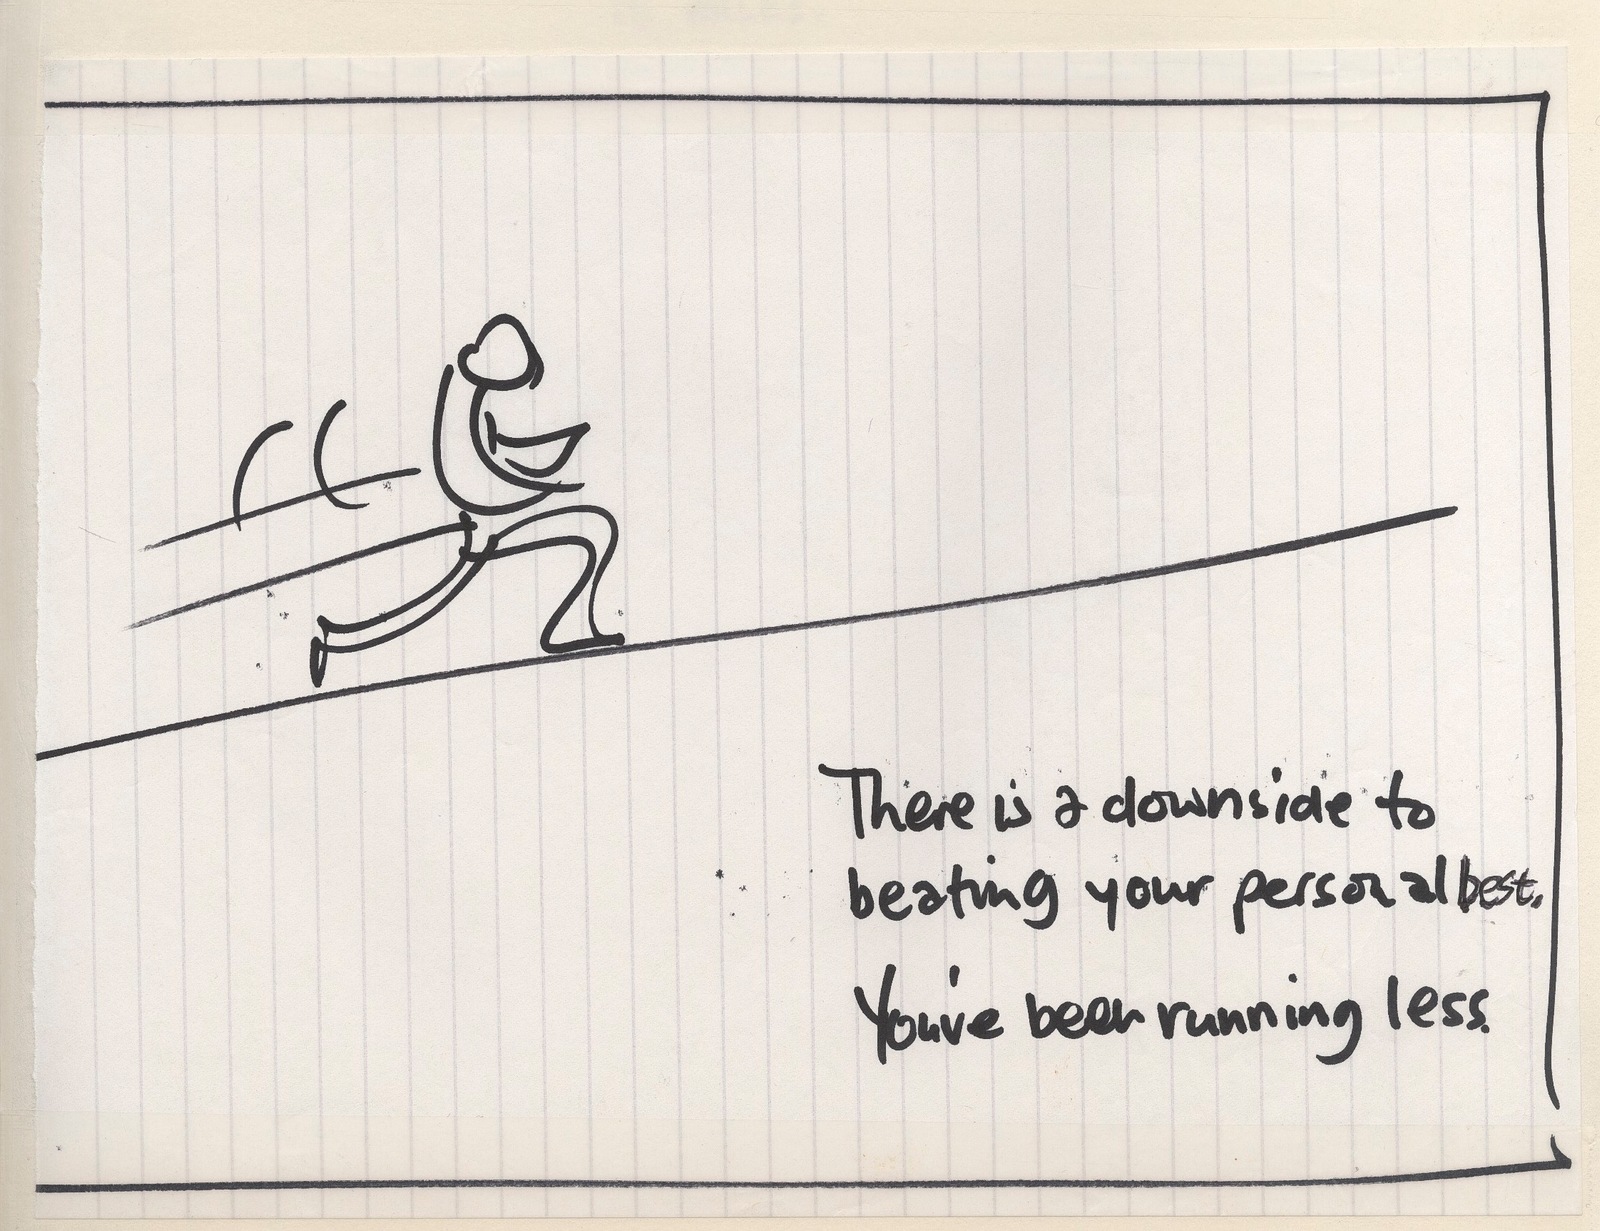 There is a downside to
beating your personal best.
You've been running less.